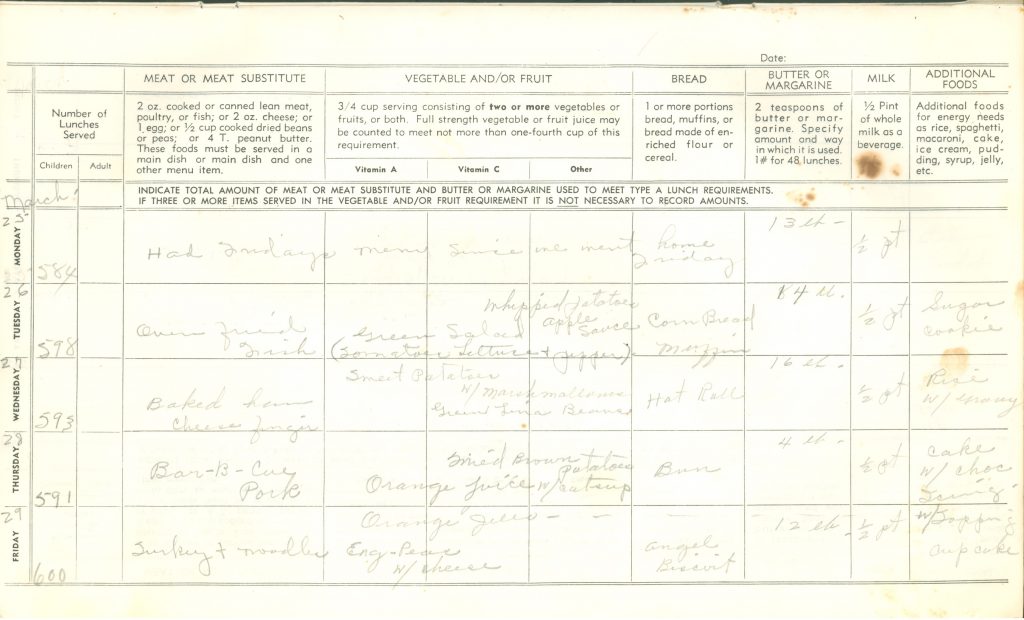 Date:
MEAT OR MEAT SUBSTITUTE
VEGETABLE AND/OR FRUIT
BREAD
BUTTER OR
MARGARINE
MILK
ADDITIONAL
FOODS
Number of
Lunches
Served
Children
Adult
2 oz. cooked or canned lean meat,
poultry, or fish; or 2 oz. cheese; or
1 egg; or ½ cup cooked dried beans
or peas; or 4 T. peanut butter.
These foods must be served in a
main dish or main dish and one
other menu item.
3/4 cup serving consisting of two or more vegetables or
fruits, or both. Full strength vegetable or fruit juice may
be counted to meet not more than one-fourth cup of this
requirement.
Vitamin A
Vitamin C
Other
1 or more portions
bread, muffins, or
bread made of en-
riched flour or
cereal.
2 teaspoons of
butter or mar-
garine. Specify
amount and way
in which it is used.
1# for 48 lunches.
½ Pint
of whole
milk as a
beverage.
Additional foods
for energy needs
as rice, spaghetti,
macaroni, cake,
ice cream, pud-
ding, syrup, jelly,
etc.
INDICATE TOTAL AMOUNT OF MEAT OR MEAT SUBSTITUTE AND BUTTER OR MARGARINE USED TO MEET TYPE A LUNCH REQUIREMENTS.
IF THREE OR MORE ITEMS SERVED IN THE VEGETABLE AND/OR FRUIT REQUIREMENT IT IS NOT NECESSARY TO RECORD AMOUNTS.
March
25
MONDAY
584
Had Fridays menu since we went home
Friday
13 lb -
½ pt
26
TUESDAY
598
Oven Fried
Fish
Whipped Potatoes
Green Salad
Apple
Sauce
(Tomatoes Lettuce + Pepper)
Corn Bread
Muffin
14 lb.
½ pt
Sugar
Cookie
27
WEDNESDAY
593
Baked ham
Cheese finger
Sweet Potatoes
w/ Marshmallows
Green Lima Beans
Hot Roll
16 lb -
½ pt
Rice
w/ Gravy
28
THURSDAY
591
Bar-B-Cue
Pork
Orange Juice
Brown
Potatoes
w/ Catsup
Bun
4 lb -
½ pt
Cake
w/ choc
Icing
29
FRIDAY
600
Turkey + noodles
Orange Jello - - -
Eng-Peas
w/ cheese
Angel
Biscuit
12 lb -
½ pt
w/ Topping
Cup cake